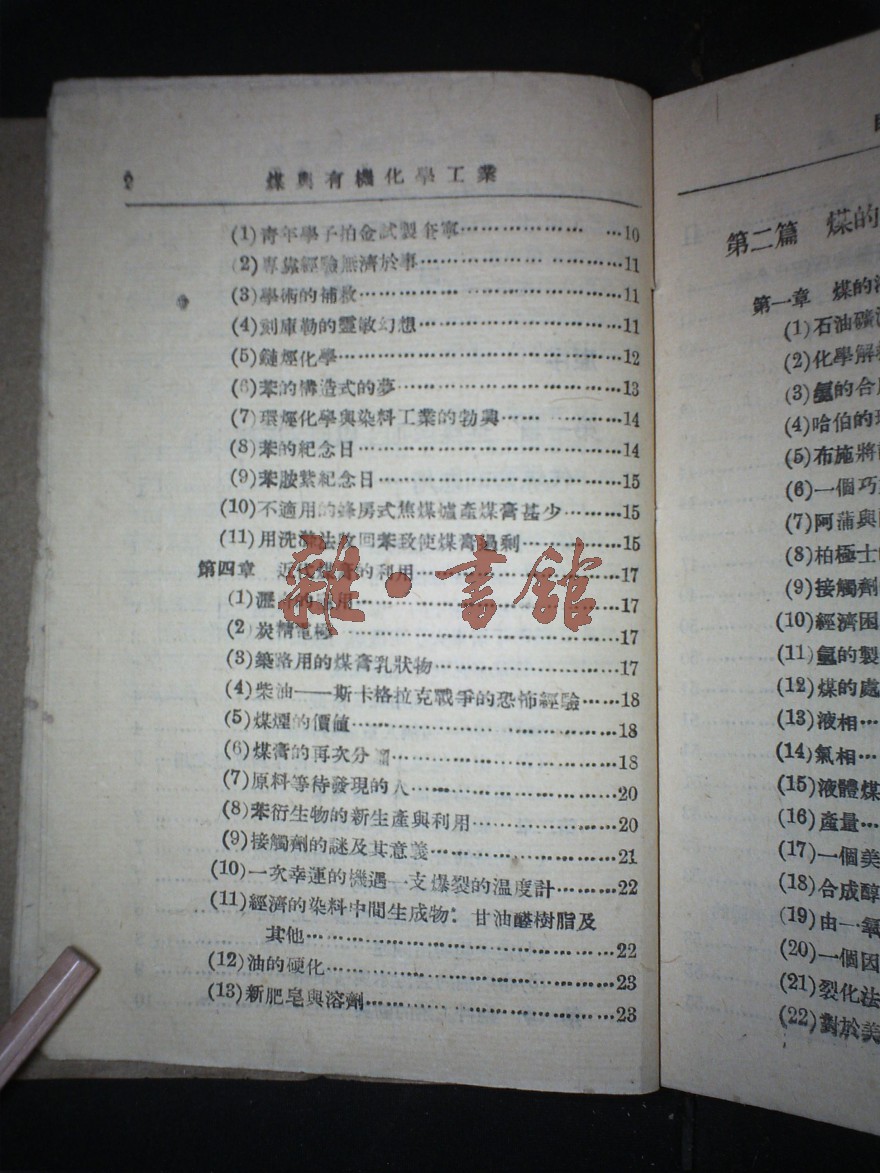 2 煤與有機化學工業
(1)青年學子柏金試製奎寧………………… …10
(2)專靠經驗無濟於事……………… ………11
(3)學術的補救……………………………11
(4)到庫勒的靈敏幻想………………………11
(5)鏈烴化學………………………………12
(6)苯的構造式的夢…………………………13
(7)環烴化學與染料工業的勃興…… ………14
(8)苯的紀念日……………………………14
(9)苯胺紫紀念日……………………………15
(10)不適用的蜂房式焦煤爐產煤膏甚少………15
(11)用洗滌法收回苯致使煤膏過剩……………15
第四章 近代煤膏的利用………………………17
(1)瀝青的 用………………………………17
(2)炭精電極………………………………17
(3)築路用的煤膏乳狀物……………………17
(4)柴油——斯卡格拉克戰爭的恐怖經驗……18
(5)煤煙的價值………………………………18
(6)煤膏的再次分餾…………………………18
(7)原料等待發現的人………………………20
(8)苯衍生物的新生產與利用………………20
(9)接觸劑的謎及其意義……………………21
(10)一次幸運的機遇—支爆裂的溫度計………22
(11)經濟的染料中間生成物:甘油醛樹脂及
其他………………………………………22
(12)油的硬化………………………………23
(13)新肥皂與溶劑……………………………23
雜·書館
第二篇 煤的
第一章 煤的
(1)石油礦
(2)化學解
(3)氫的合
(4)哈伯的
(5)布施將
(6)一個巧
(7)阿蒲與
(8)柏極士
(9)接觸劑
(10)經濟困
(11)氫的製
(12)煤的處
(13)液相…
(14)氣相…
(15)液體煤
(16)產量…
(17)一個美
(18)合成醇
(19)由一氧
(20)一個因
(21)裂化法
(22)對於美